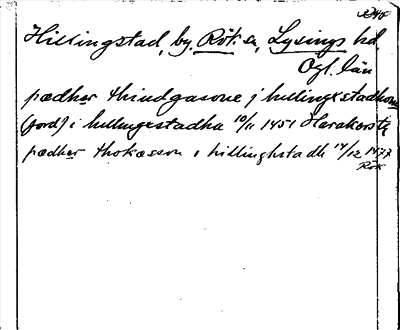 Hillingstad, by, Rök sn, Lysings hd.
Ögl. län
pædhær thindgasone j hillingxstadhom
(jord) i hillingestadha 10/11 1451
pædhær thokasson i hillinghstadh 14/12 1477
Rök